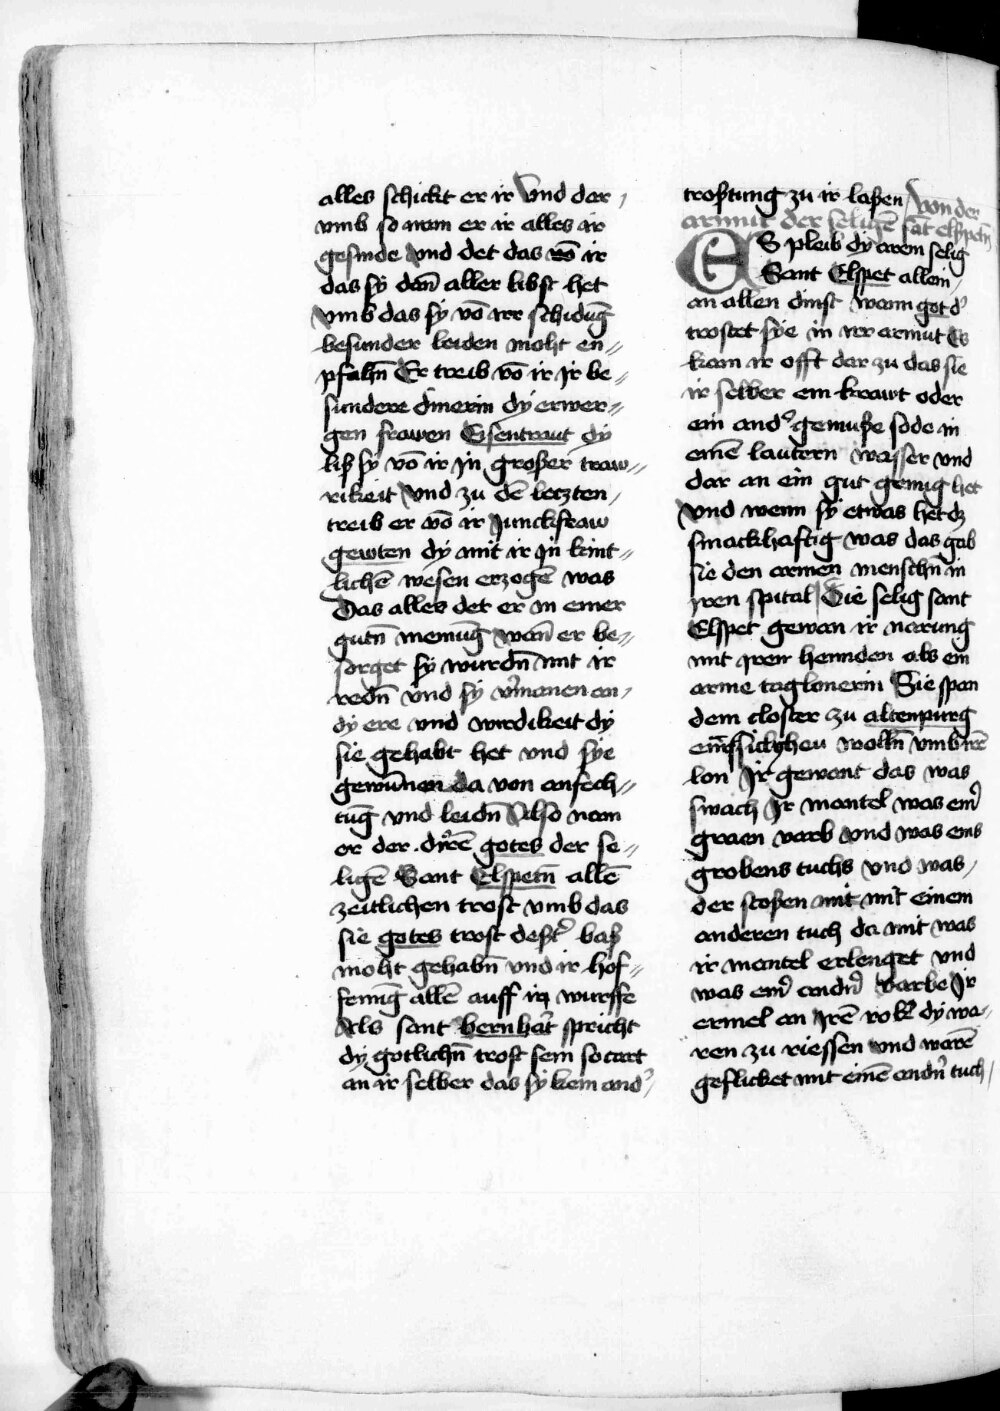 alles schickt er ir Vnd dar /
vmb so nam er ir alles ir
gesinde vnd det das vō ir
das sy dañ aller libst het
vmb das sy vō irr schidūg
besunder leiden moht en//
pfahñ Er treib vō ir Jr be//
sundere dinerin dy erwer//
gen frawen Eisentraut dy
liß sy vō ir jn großer traw//
rikeit Vnd zu dē letzten /
treib er vō ir Junckfraw
gewten dy mit ir jn kint//
lichē wesen erzogē was
Das alles det er in einer
gutñ meinūg wañ er be//
sorget sy wurdñ mit ir
redñ vnd sy v̄manen an /
dy ere vnd wirdikeit dy
sie gehabt het vnd sye
gewūnen da von anfech//
tūg vnd leidñ Also nam
er der dyrē gotes der se//
ligē Sant Elspetñ allē
zeitlichen trost vmb das
sie gotes trost dest' baß
moht gehabñ vnd ir hof//
fenūg allē auff in wurffe
Als sant bernhart spricht
dy gotlichñ trost sein so zart
an ir selber das sy kein and' //
trostung zu ir laßen / Von der
armut der seligē sāt elspetñ
ES pleib dy arem selig
Sant Elspet allein /
an allen dinst wann got d'
trostet sye in irr armut Es
kam ir offt dar zu das sie
ir selber ein krawt oder
ein and' gemuße sode in
einē lautern wasser vnd
dar an ein gut genug het
Vnd wenn sy etwas het dz
smackhaftig was das gab
sie den armen menschñ in
yren spital Die selig sant
Elspet gewan ir narung
mit iren hennden als ein
arme taglonerin Sie span
dem closter zu altenpurg
wolln vmb irē
lon Jr gewant das was
swach Jr mantel was ein'
graen varb vnd was eins
grobens tuchs vnd was /
der stoßen mit mit einem
anderen tuch da mit was
ir mantel erlenget vnd
was ein' andñ varbe Jr
ermel an Jrē rok dy wa-
ren zu riessen vnd warē
geflicket mit einē andñ tuch /